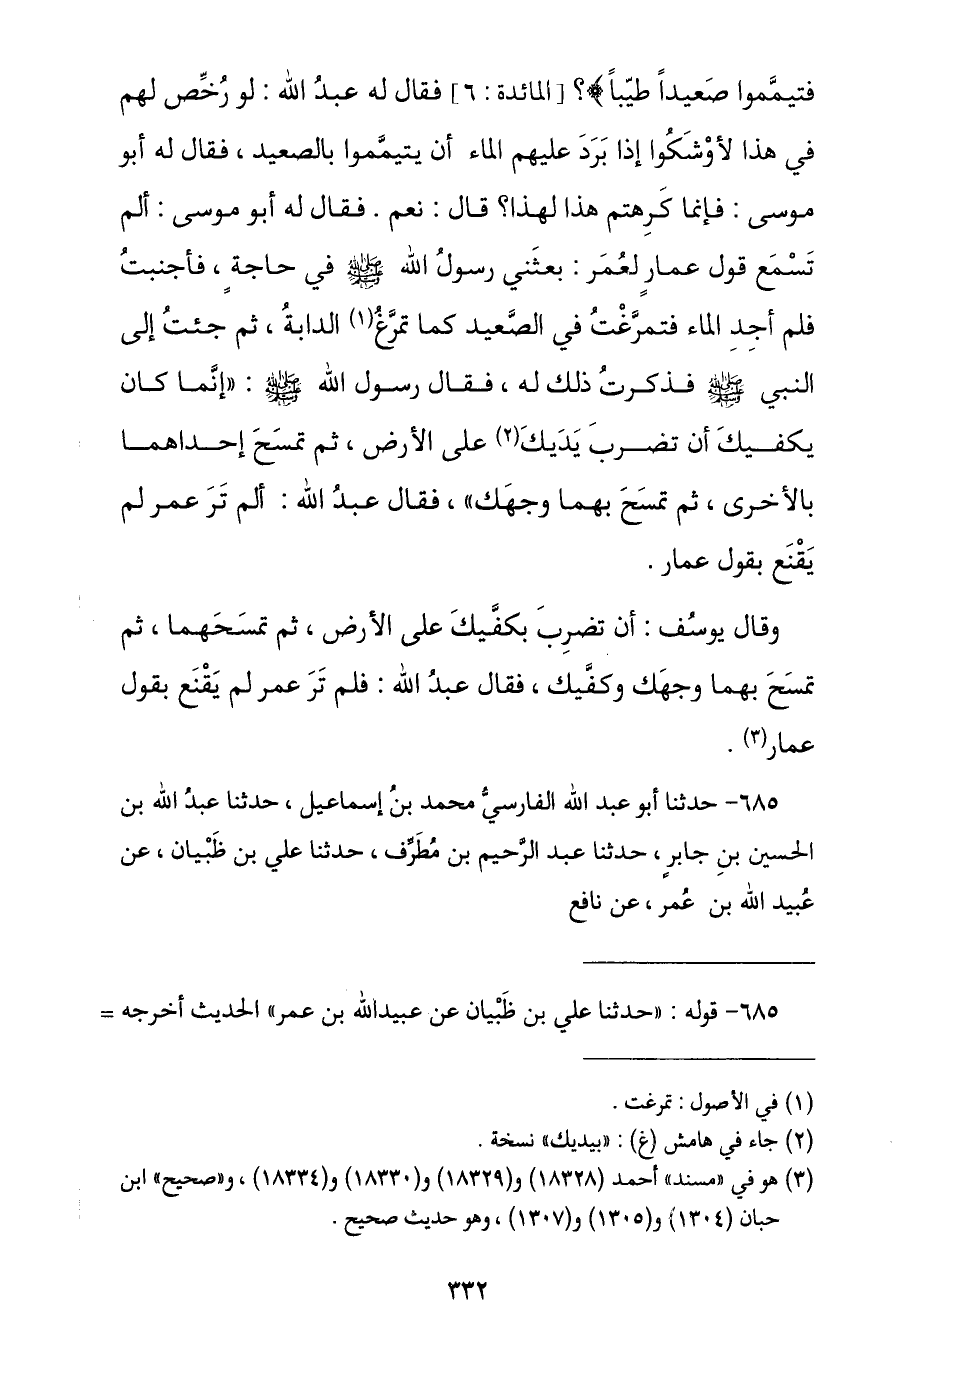 فتيمَّموا صَعيداً طيّباً﴾؟ [المائدة : ٦] فقال له عبدُ الله : لو رُخِّص لهم
في هذا لأوْشَكُوا إذا بَرَدَ عليهم الماء أن يتيمَّموا بالصعيد ، فقال له أبو
موسى : فإنما كَرِهتم هذا لهذا؟ قال : نعم . فقال له أبو موسى : ألم
تَسْمَع قول عمارٍ لعُمَر : بعثَني رسولُ الله ﷺ في حاجةٍ ، فأجنبتُ
فلم أجِدِ الماء فتمرَّغْتُ في الصَّعيد كما تمرَّغُ(١) الدابةُ ، ثم جئتُ إلى
النبي ﷺ فذكرتُ ذلك له ، فقال رسول الله ﷺ : «إنَّما كان
يكفيكَ أن تضربَ يَدَيكَ(٢) على الأرض ، ثم تمسَحَ إحداهما
بالأخرى ، ثم تمسَحَ بهما وجهَك» ، فقال عبدُ الله : ألم تَرَ عمر لم
يَقْنَع بقول عمار .
وقال يوسُف : أن تضرِبَ بكفَّيكَ على الأرض ، ثم تمسَحَهما ، ثم
تمسَحَ بهما وجهَك وكفَّيك ، فقال عبدُ الله : فلم تَرَ عمر لم يَقْنَع بقول
عمار(٣) .
٦٨٥- حدثنا أبو عبد الله الفارسيُّ محمد بنُ إسماعيل ، حدثنا عبدُ الله بن
الحسين بنِ جابرٍ ، حدثنا عبد الرَّحيم بن مُطَرِّف ، حدثنا علي بن ظَبْيان ، عن
عُبيد الله بن عُمر ، عن نافع
٦٨٥- قوله : «حدثنا علي بن ظَبْيان عن عبيدالله بن عمر» الحديث أخرجه =
(١) في الأصول : تمرغت .
(٢) جاء في هامش (غ) : «بيديك» نسخة .
(٣) هو في «مسند» أحمد (١٨٣٢٨) و(١٨٣٢٩) و(١٨٣٣٠) و(١٨٣٣٤) ، و«صحيح» ابن
حبان (١٣٠٤) و(١٣٠٥) و(١٣٠٧) ، وهو حديث صحيح .
٣٣٢